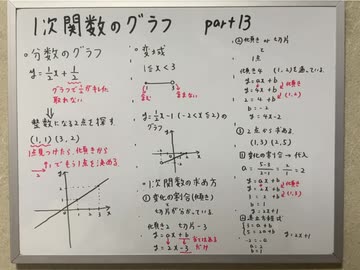 1次関数のグラフ part 13
・分数のグラフ
y=1/2x+1/2
グラフで1/2がキレイに
取れない
⇓
整数になる2点を探す
(1,1)(3,2)
1点見つけたら、傾きから
でもう1点を決める。
・変域
1≦x<3
1 3
含む 含まない
y=1/2x-1 (-2<x≦2)の
グラフ
・1次関数の求め方
① 変化の割合(傾き)
切片が分かっている。
傾き2 切片-3
y=ax+b
y=2x-3
② 傾き or 切片
と
1点
傾き4 (1,2)を通っている
y=ax+b
y=4x+b
2=4+b
b=-2
y=4x-2
③ 2点から求める
(1,3)(2,5)
1 変化の割合 → 代入
a=5-3/2-1=2/1=2
y=ax+b
y=2x+b
3=2+b
b=1
y=2x+1
2 連立方程式
3=a+b
5=2a+b
-2=-a
a=2
b=1
y=2x+1